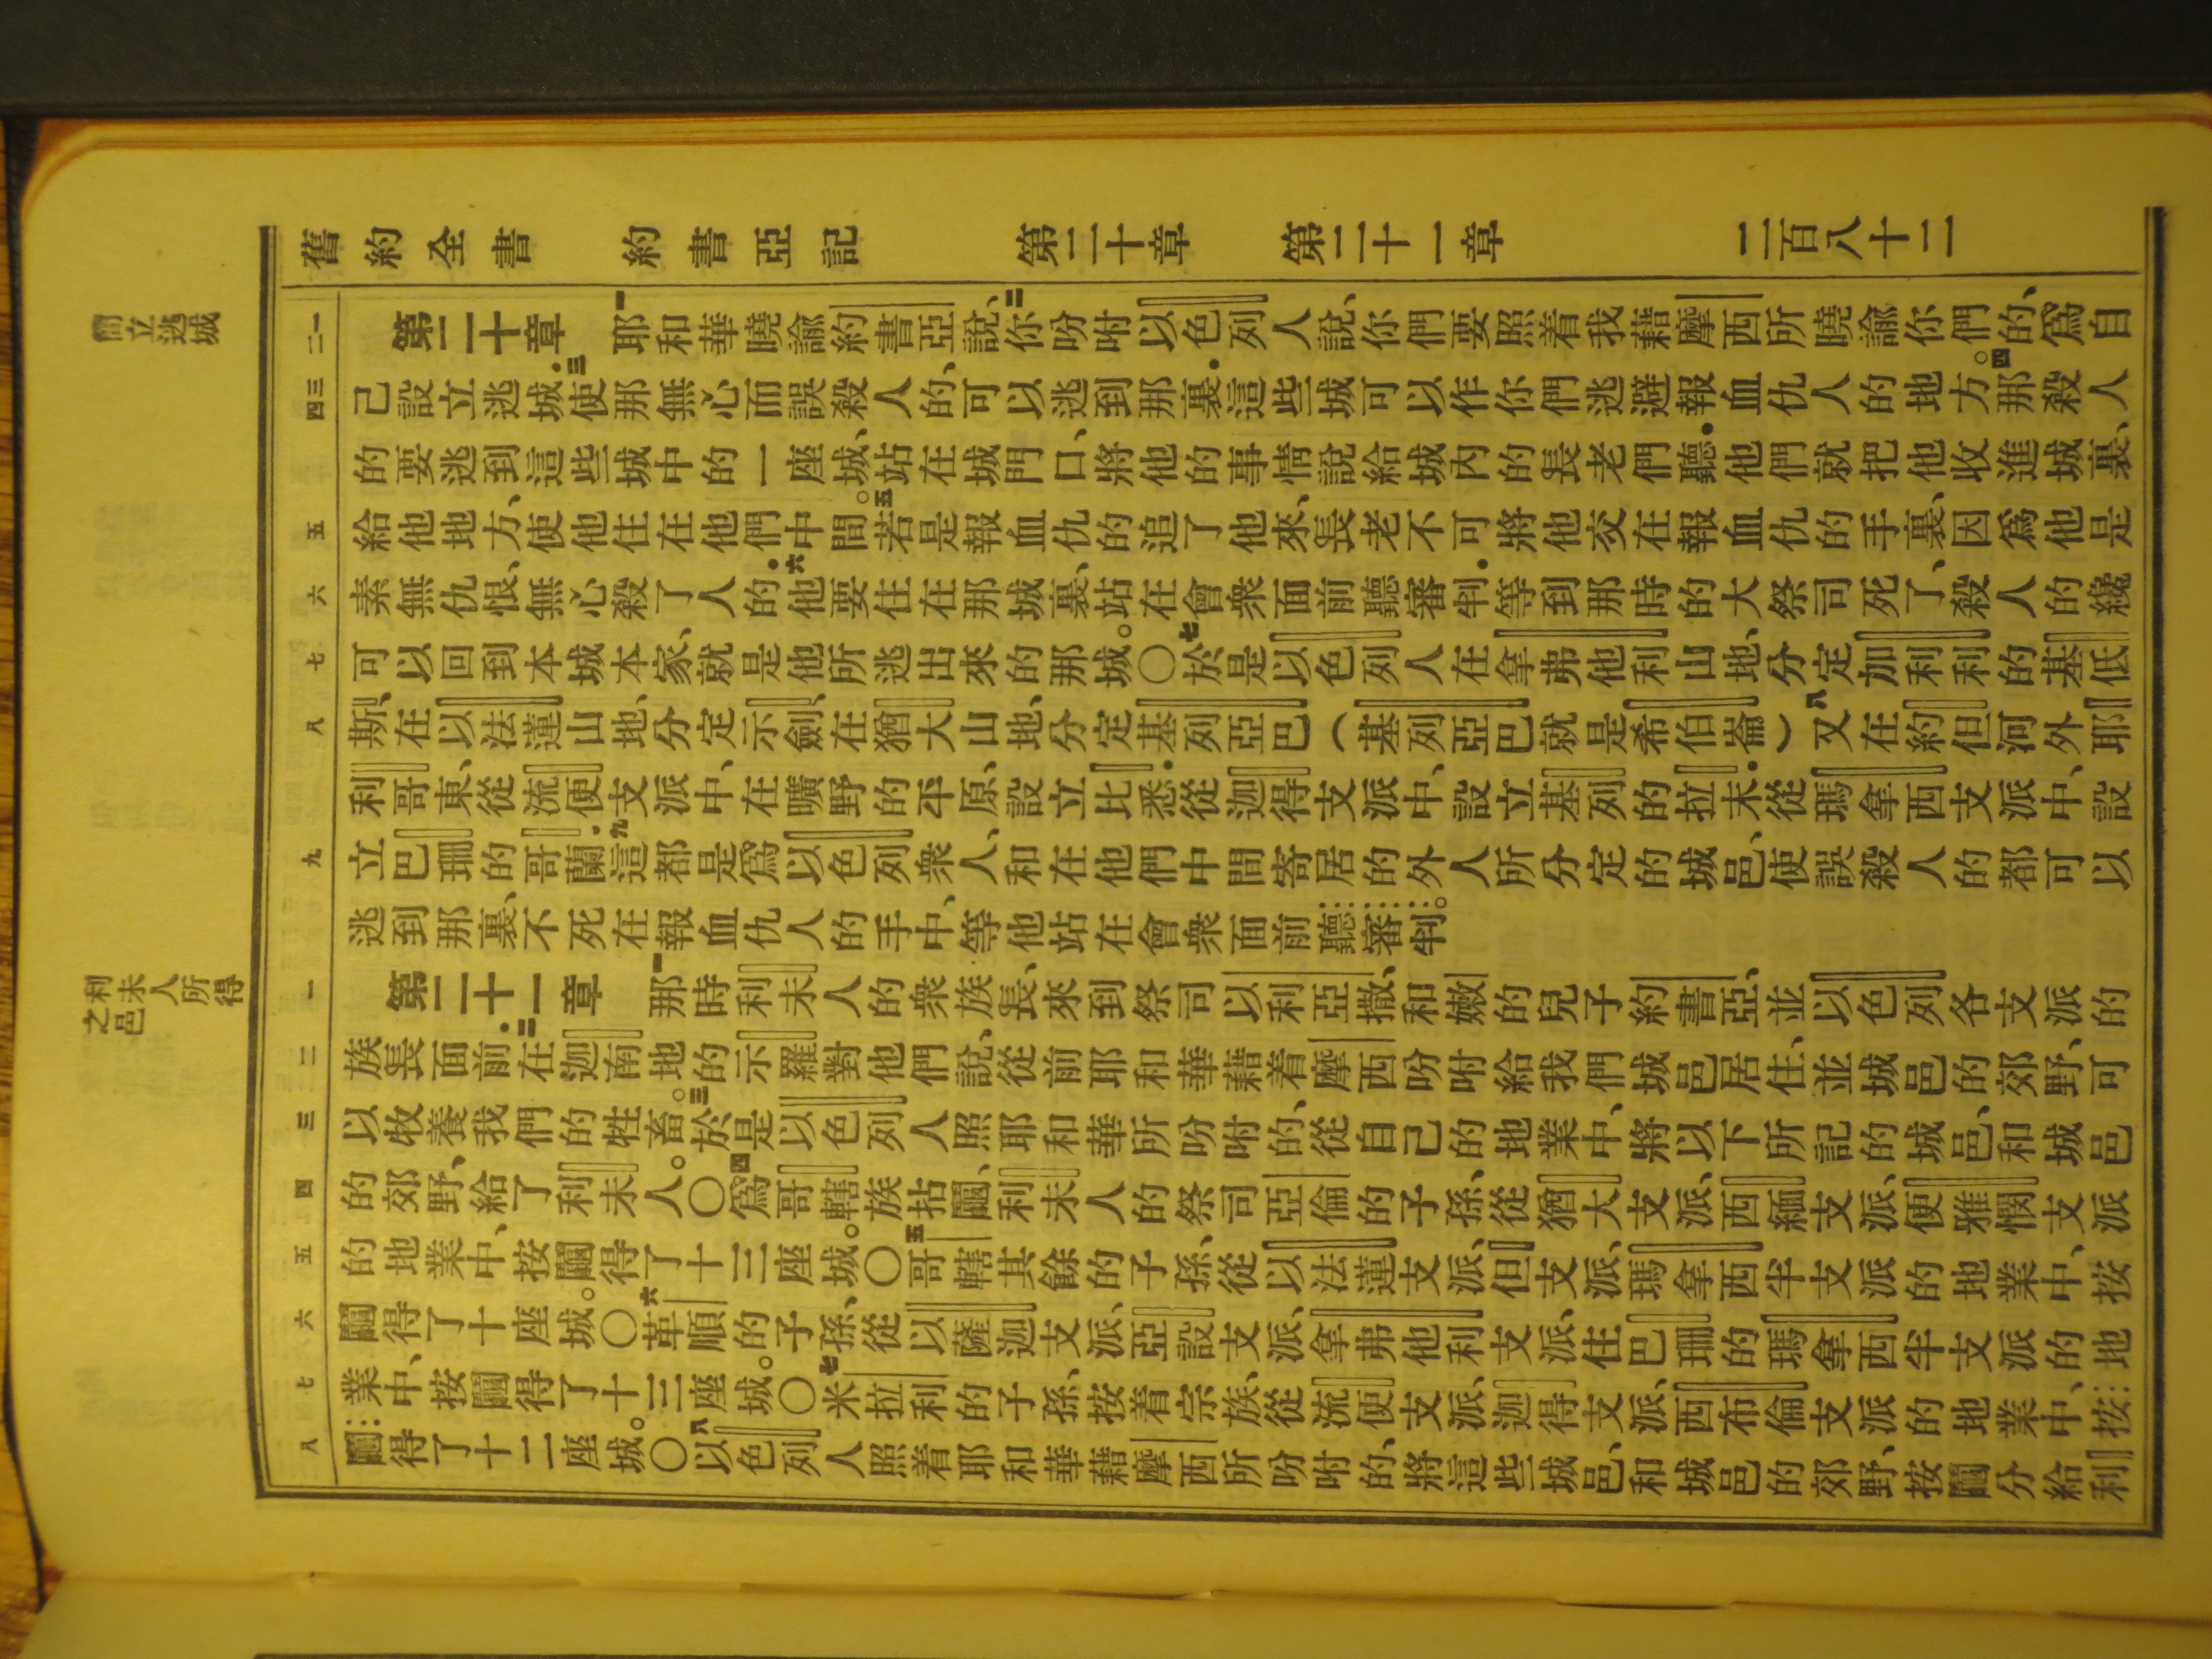 舊約全書 約書亞記 第二十章 第二十一章 二百八十二
立逃城
一 二 三 四 五 六 七 八 九 一 二 三 四 五 六 七 八
第二十章 一耶和華曉諭約書亞說、二你吩咐以色列人說、你們要照着我藉摩西所曉諭你們的、爲自
己設立逃城．三使那無心而誤殺人的、可以逃到那裏．這些城可以作你們逃避報血仇人的地方。四那殺人
的要逃到這些城中的一座城、站在城門口、將他的事情說給城內的長老們聽．他們就把他收進城裏、
給他地方、使他住在他們中間。五若是報血仇的追了他來、長老不可將他交在報血仇的手裏、因爲他是
素無仇恨、無心殺了人的．六他要住在那城裏、站在會衆面前聽審判．等到那時的大祭司死了、殺人的纔
可以回到本城本家、就是他所逃出來的那城。〇七於是以色列人在拿弗他利山地、分定加利利的基低
斯、在以法蓮山地、分定示劍、在猶大山地、分定基列亞巴（基列亞巴就是希伯崙）八又在約但河外耶
利哥東、從流便支派中、在曠野的平原、設立比悉．從迦得支派中、設立基列的拉末．從瑪拿西支派中、設
立巴珊的哥蘭．九這都是爲以色列衆人、和在他們中間寄居的外人所分定的城邑、使誤殺人的都可以
逃到那裏、不死在報血仇人的手中、等他站在會衆面前聽審判。
利未人所得之邑
第二十一章 一那時利未人的衆族長、來到祭司以利亞撒、和嫩的兒子約書亞、並以色列各支派的
族長面前．二在迦南地的示羅對他們說、從前耶和華藉着摩西吩咐給我們城邑居住、並城邑的郊野、可
以牧養我們的牲畜。三於是以色列人照耶和華所吩咐的、從自己的地業中、將以下所記的城邑、和城邑
的郊野、給了利未人。〇四爲哥轄族拈鬮、利未人的祭司亞倫的子孫、從猶大支派、西緬支派、便雅憫支派
的地業中、按鬮得了十三座城。〇五哥轄其餘的子孫、從以法蓮支派、但支派、瑪拿西半支派的地業中、按
鬮得了十座城。〇六革順的子孫、從以薩迦支派、亞設支派、拿弗他利支派、住巴珊的瑪拿西半支派的地
業中、按鬮得了十三座城。〇七米拉利的子孫、按着宗族、從流便支派、迦得支派、西布倫支派的地業中、按
鬮得了十二座城。〇八以色列人照着耶和華藉摩西所吩咐的、將這些城邑、和城邑的郊野、按鬮分給利